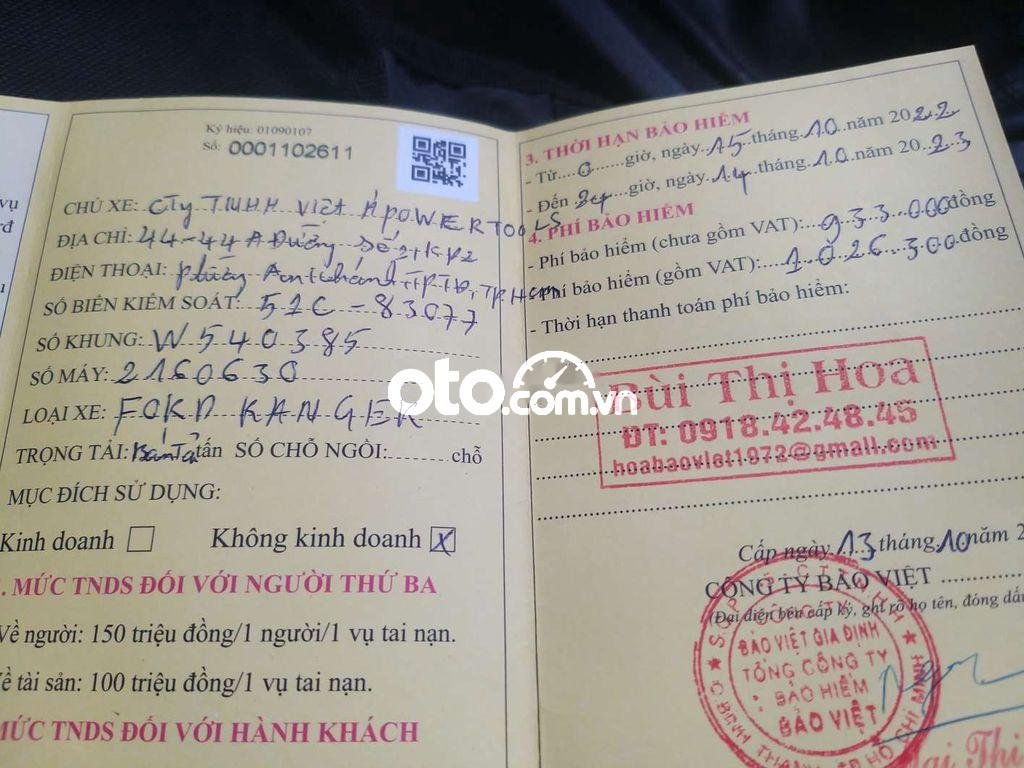 Ký hiệu: 01090107
Số: 0001102611
CHỦ XE: CTy TNHH VIỆT Á POWER TOOLS
ĐỊA CHỈ: 44-44A Đường số 2, KP2
ĐIỆN THOẠI: phường An Khánh, TPTĐ, TPHCM
SỐ BIỂN KIỂM SOÁT: 51C - 83077
SỐ KHUNG: W540385
SỐ MÁY: 2160630
LOẠI XE: FORD RANGER
TRỌNG TẢI: Bán Tải tấn SỐ CHỖ NGỒI: chỗ
MỤC ĐÍCH SỬ DỤNG:
Kinh doanh Không kinh doanh X
. MỨC TNDS ĐỐI VỚI NGƯỜI THỨ BA
Về người: 150 triệu đồng/1 người/1 vụ tai nạn.
ề tài sản: 100 triệu đồng/1 vụ tai nạn.
MỨC TNDS ĐỐI VỚI HÀNH KHÁCH
3. THỜI HẠN BẢO HIỂM
- Từ 0 giờ, ngày 15 tháng 10 năm 2022
- Đến 24 giờ, ngày 14 tháng 10 năm 2023
4. PHÍ BẢO HIỂM
- Phí bảo hiểm (chưa gồm VAT): 933.000 đồng
- Phí bảo hiểm (gồm VAT): 1.026.300 đồng
- Thời hạn thanh toán phí bảo hiểm:
Bùi Thị Hoa
ĐT: 0918.42.48.45
hoabaoviet1972@gmail.com
Cấp ngày 13 tháng 10 năm 2
CÔNG TY BẢO VIỆT
(Đại diện bên cấp ký, ghi rõ họ tên, đóng dấu
BẢO VIỆT GIA ĐỊNH
TỔNG CÔNG TY
BẢO HIỂM
BẢO VIỆT
Mai Thị
vụ
oto.com.vn